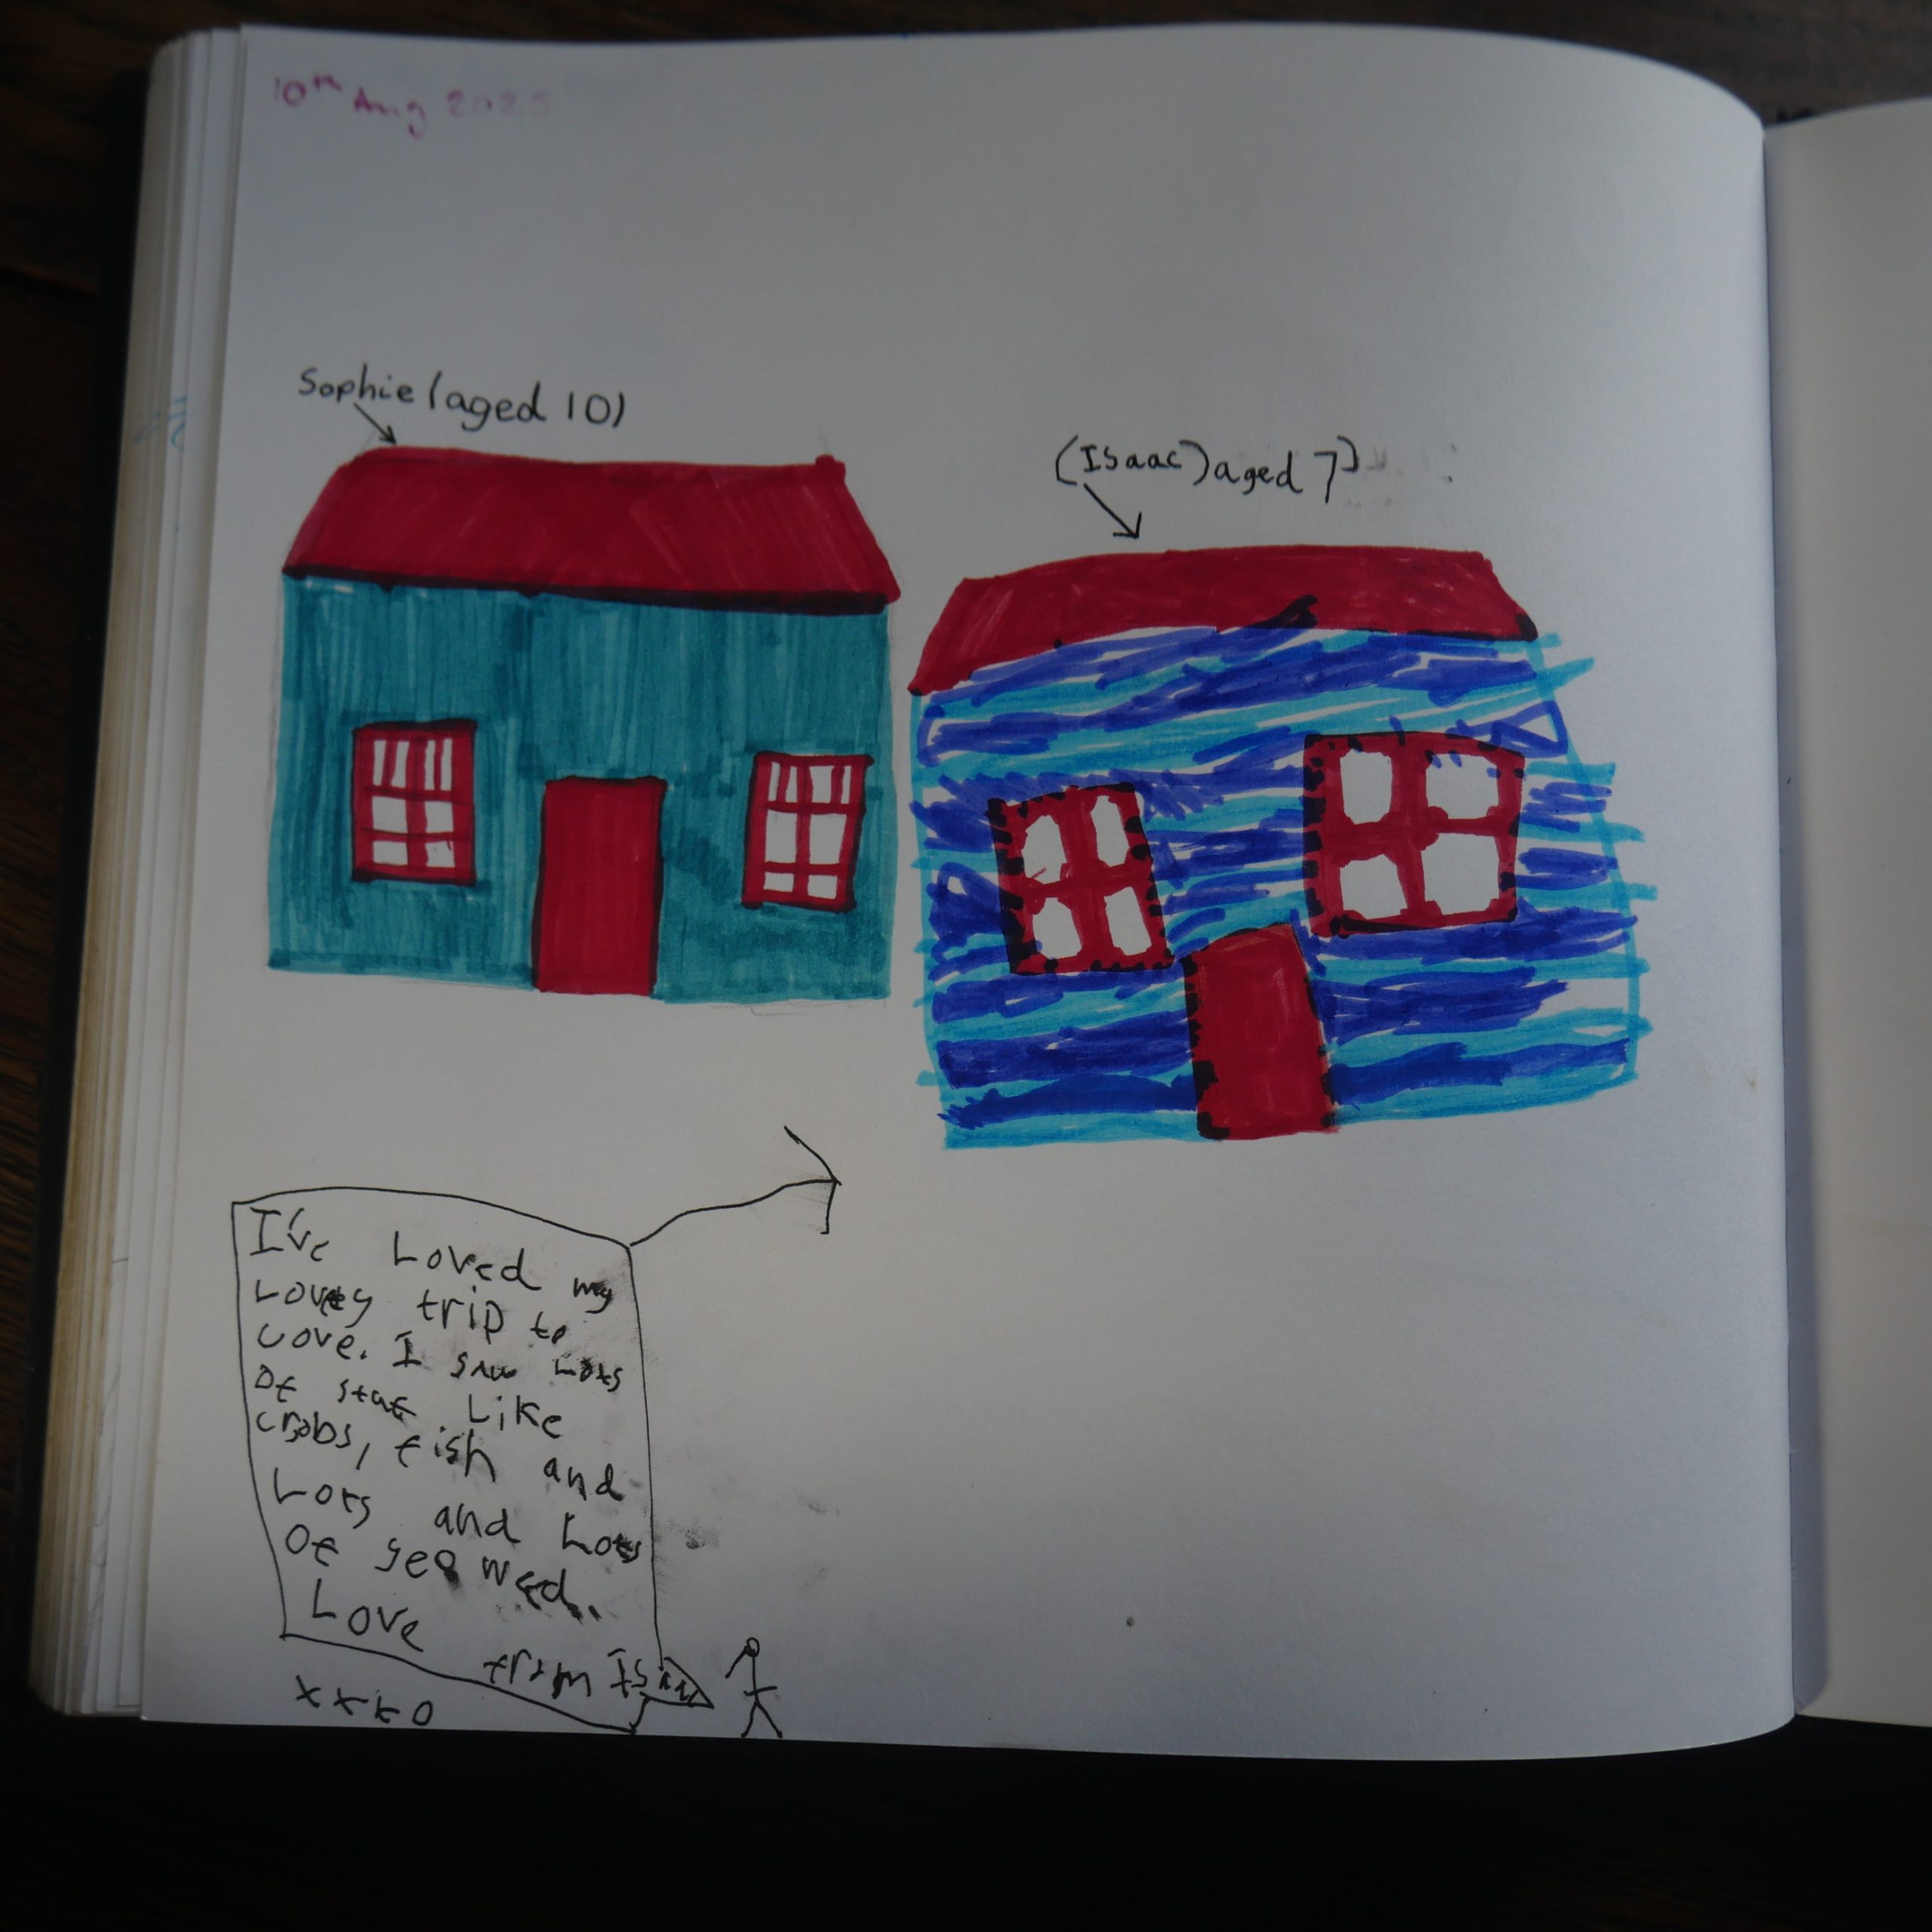 10th Aug 2025
Sophie (aged 10)
(Isaac) aged 7)
I've Loved my
Lovey trip to
cove. I saw Lots
of stuf Like
crabs, fish and
Lots and Lots
Of sea weed.
Love
from Isaac
xxxo